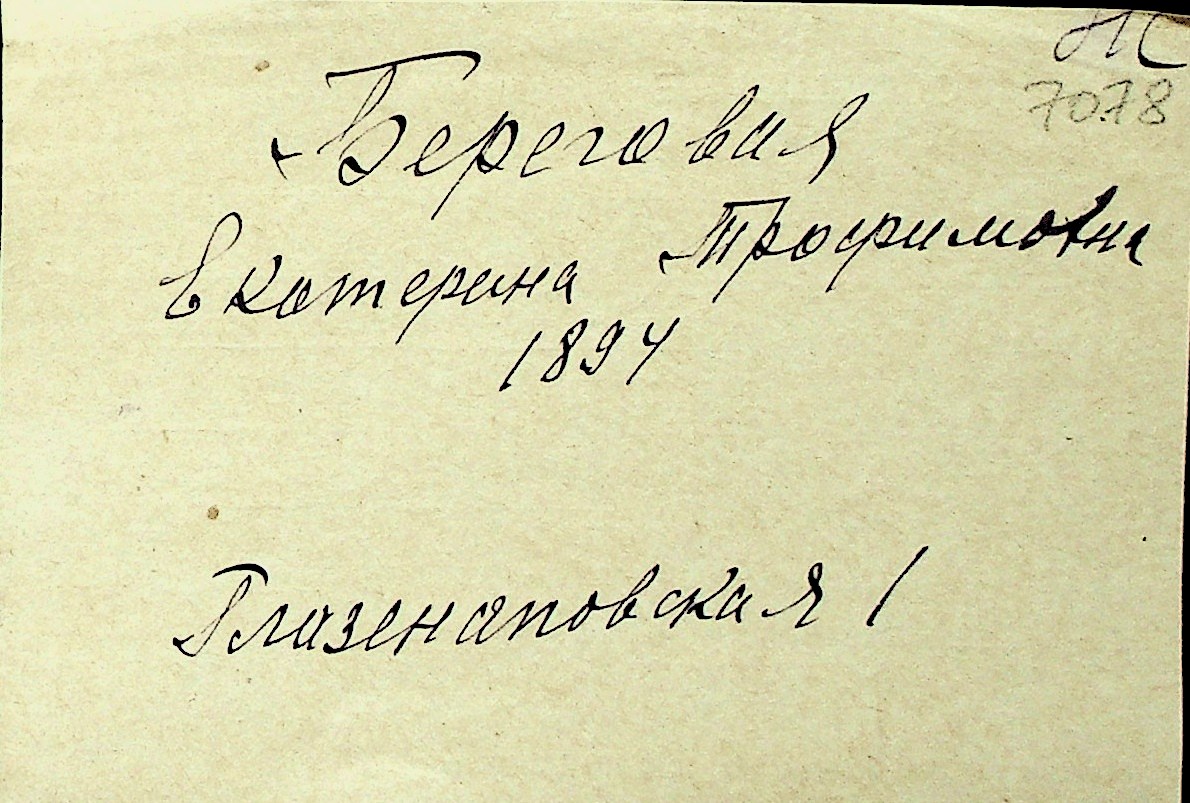 7078
Береговая
Екатерина Трофимовна
1894
Глазенаповская 1